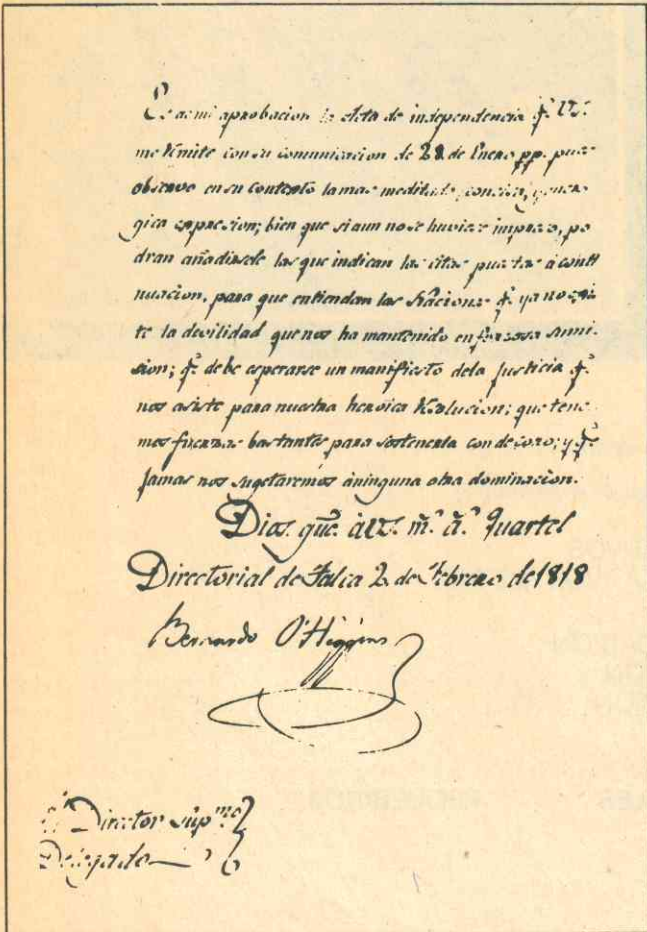 Es de mi aprobacion la Acta de independencia q.e US.
me remite con su comunicacion de 28 de Enero pp. pues
observo en su contexto la mas meditada, concisa, y ener-
gica expresion; bien que si aun no se huviese impreso, po
dran añadirsele las que indican las citas puestas á conti
nuacion, para que entiendan las Naciones q.e ya no exis
te la devilidad que nos ha mantenido en forzosa sumi-
sion; q.e debe esperarse un manifiesto dela justicia q.e
nos asiste para nuestra heroica Resolucion; que tene-
mos fuerzas bastantes para sostenerla con decoro; y q.e
jamas nos sugetaremos áninguna otra dominacion.
Dios gûe. à US. m.s a.s Quartel
Directorial de Talca 2 de Febrero de 1818
Bernardo O'Higgins
Director Sup.mo
Delegado